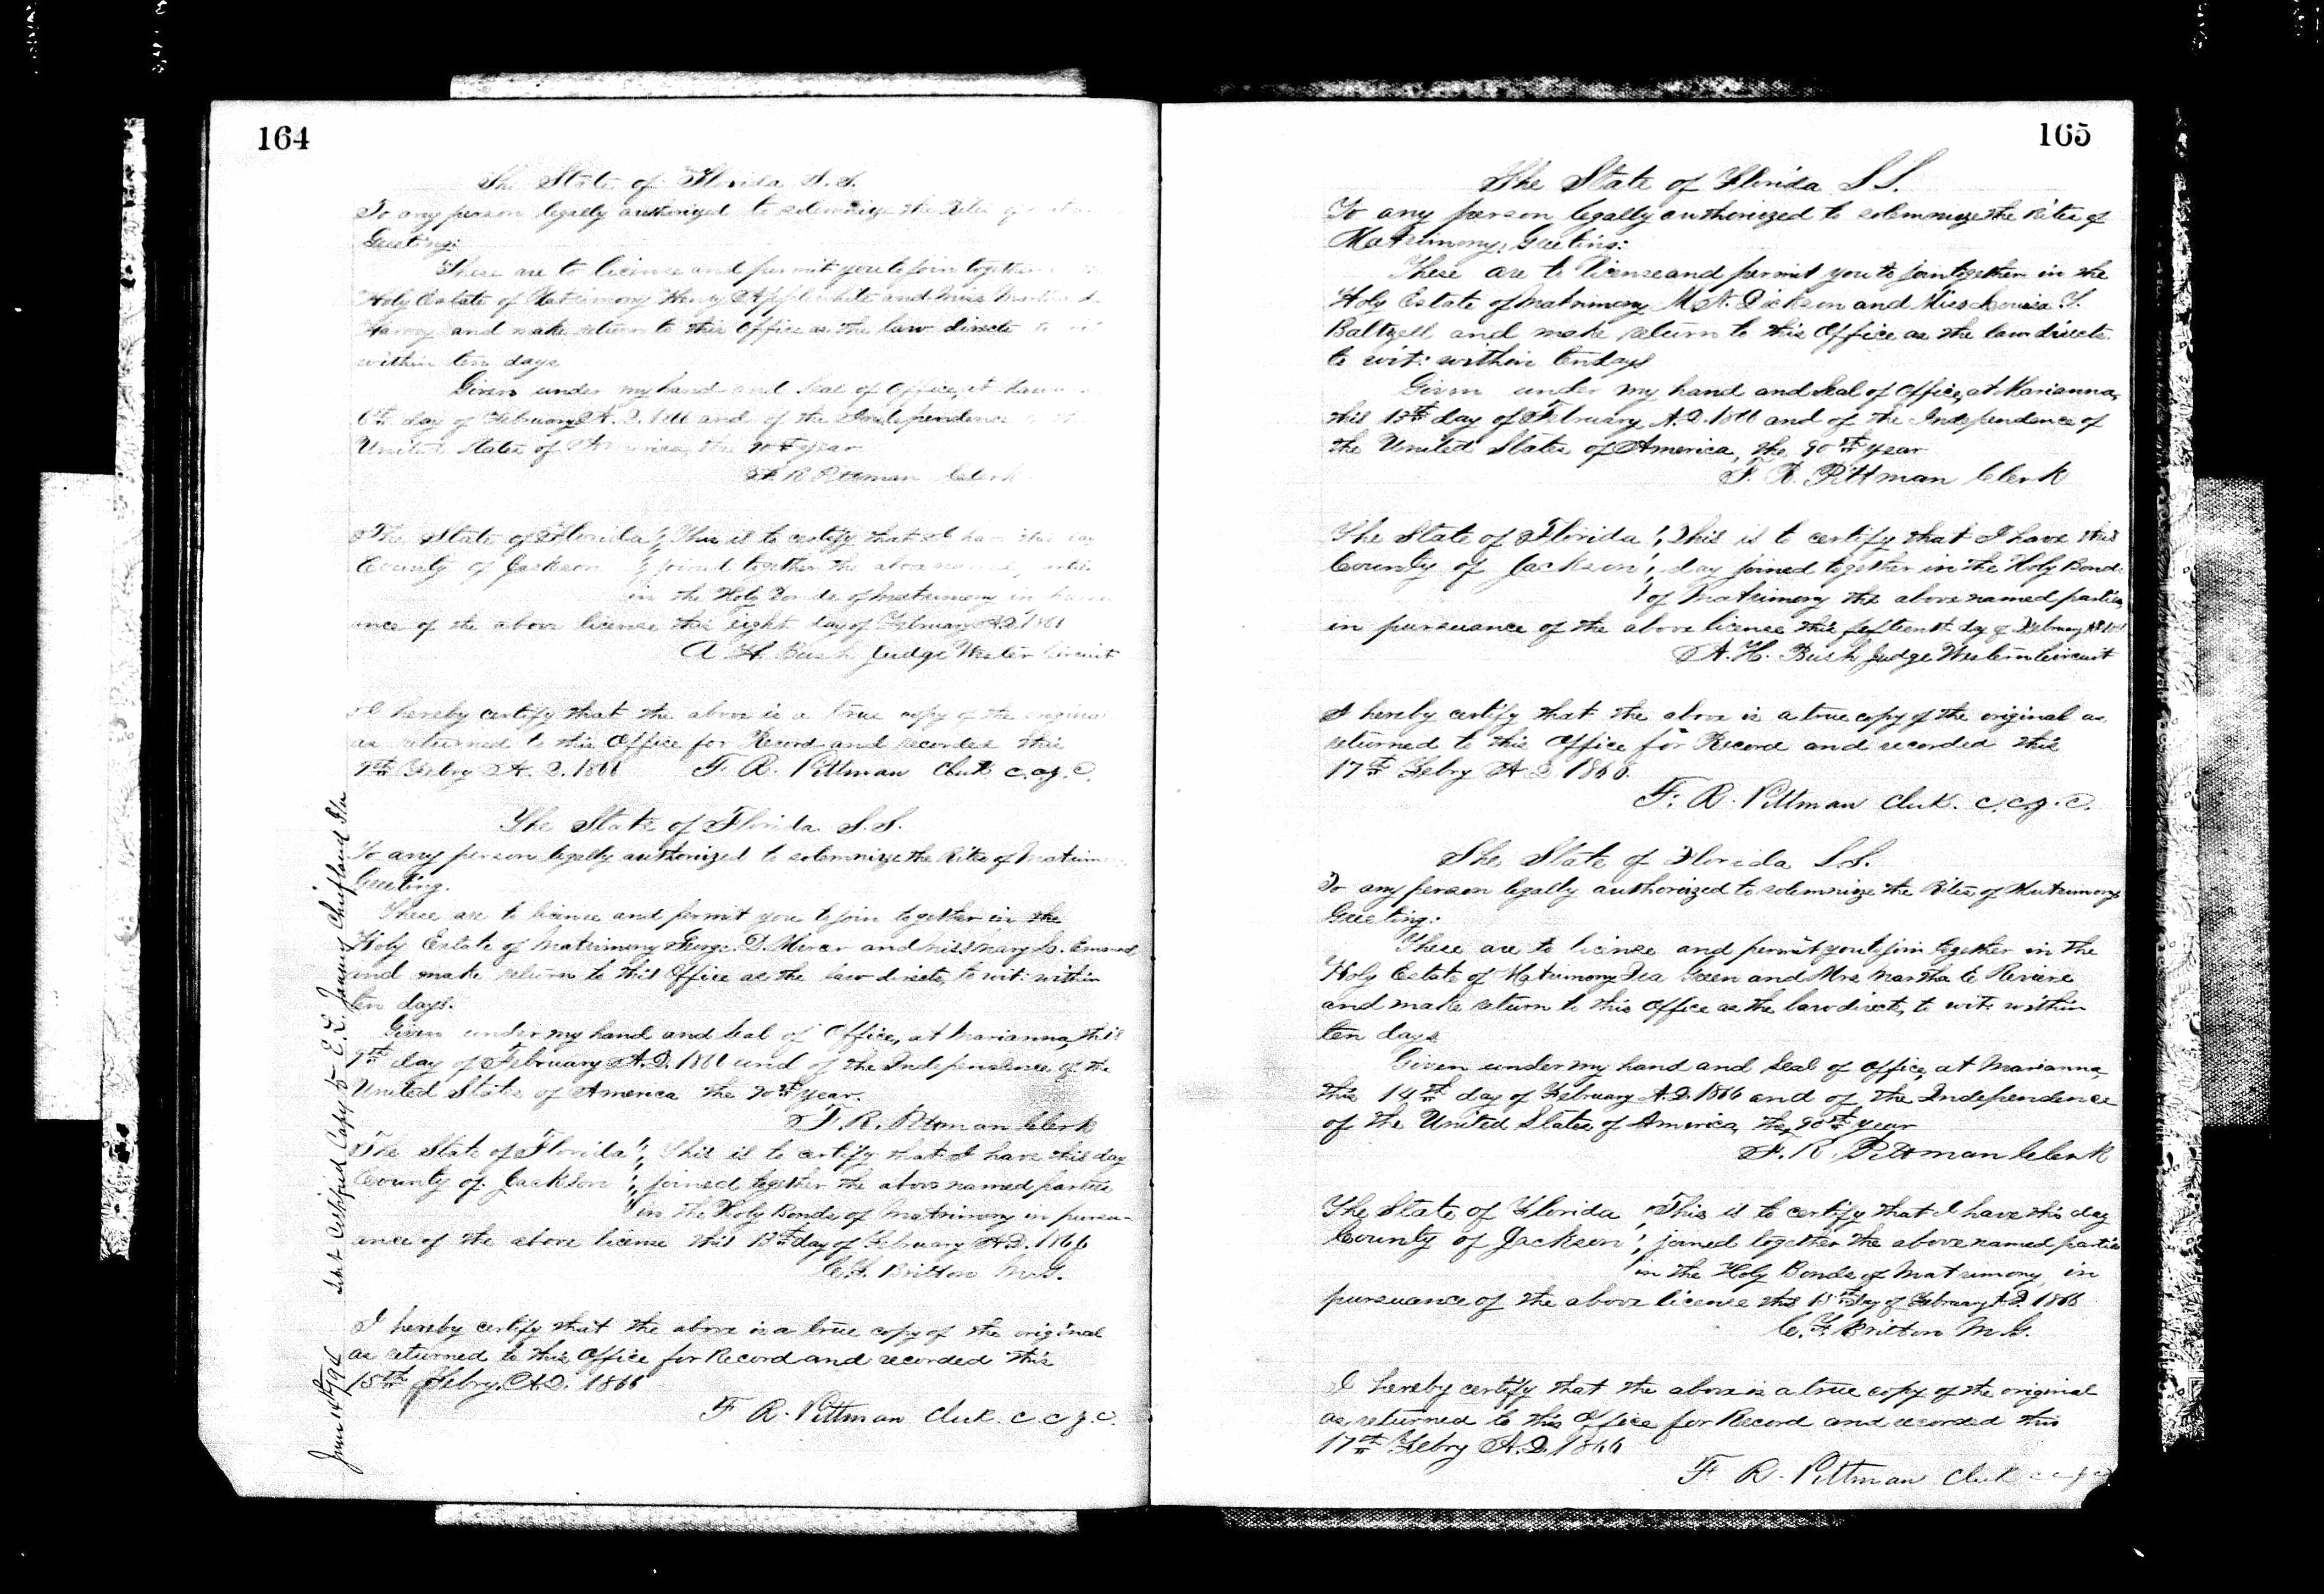 164
The State of Florida S.S.
To any person legally authorized to solemnize the Rites
Greeting:
These are to license and permit you to join together
Holy Estate of Matrimony Henry Applewhite and Miss
Harvey and make return to this Office as the law directs to wit
within ten days
Given under my hand and Seal of Office, at
6th day of February A.D. 1866 and of the Independence
United States of America, the 90th year
F. R. Pittman Clerk
The State of Florida This is to certify that I have this day
County of Jackson joined together the above named parties
in the Holy Bonds of Matrimony in
ance of the above license this eight day of February A.D. 1866
A. H. Bush Judge Western Circuit
I hereby certify that the above is a true copy of the original
as returned to this Office for Record and recorded this
9th Febry A. D. 1866 F. R. Pittman Clerk C.C.J.C.
The State of Florida S.S.
To any person legally authorized to solemnize the Rites of
Greeting.
These are to license and permit you to join together in the
Holy Estate of Matrimony George D. Mercer and Miss Mary
and make return to this Office as the law directs, to wit: within
ten days.
Given under my hand and Seal of Office, at Marianna, this
9th day of February A.D. 1866 and of the Independence of the
United States of America the 90th year.
F. R. Pittman Clerk
The State of Florida This is to certify that I have this day
County of Jackson joined together the above named parties
in the Holy Bonds of Matrimony in pursu-
ance of the above license this 13th day of February A.D. 1866
C. F. Britton M.G.
I hereby certify that the above is a true copy of the original
as returned to this Office for Record and recorded this
15th Febry. A.D. 1866
F. R. Pittman Clerk. C.C.J.C.
June 14th Certified Copy to E. L. Chiefland Fla
165
The State of Florida S.S.
To any person legally authorized to solemnize the Rites of
Matrimony; Greeting:
These are to license and permit you to join together in the
Holy Estate of Matrimony M. A. Dickson and Miss Louisa T.
Baltzell and make return to this Office as the law directs.
to wit: within ten days
Given under my hand and Seal of Office, at Marianna,
this 13th day of February A.D. 1866 and of the Independence of
the United States of America, the 90th year
F. R. Pittman Clerk
The State of Florida This is to certify that I have this
County of Jackson day joined together in the Holy Bonds
of Matrimony the above named parties,
in pursuance of the above license this fifteenth day of February
A. H. Bush Judge Western Circuit
I hereby certify that the above is a true copy of the original as
returned to this Office for Record and recorded this
17th Febry A D 1866.
F. R. Pittman Clerk. C.C.J.C.
The State of Florida S.S.
To any person legally authorized to solemnize the Rites of Matrimony
Greeting:
These are to license and permit you to join together in the
Holy Estate of Matrimony Ira Green and Mrs Martha E Reviere
and make return to this Office as the law directs, to wit: within
ten days
Given under my hand and Seal of Office, at Marianna,
this 14th day of February A.D. 1866 and of the Independence
of the United States of America, the 90th year
F. R. Pittman Clerk
The State of Florida This is to certify that I have this day
County of Jackson joined together the above named parties
in the Holy Bonds of Matrimony, in
pursuance of the above license this 15th day of February A.D. 1866
C. F. Britton M.G.
I hereby certify that the above is a true copy of the original
as returned to this Office for Record and recorded this
17th Febry A.D. 1866
F. R. Pittman Clerk C.C.J.C.